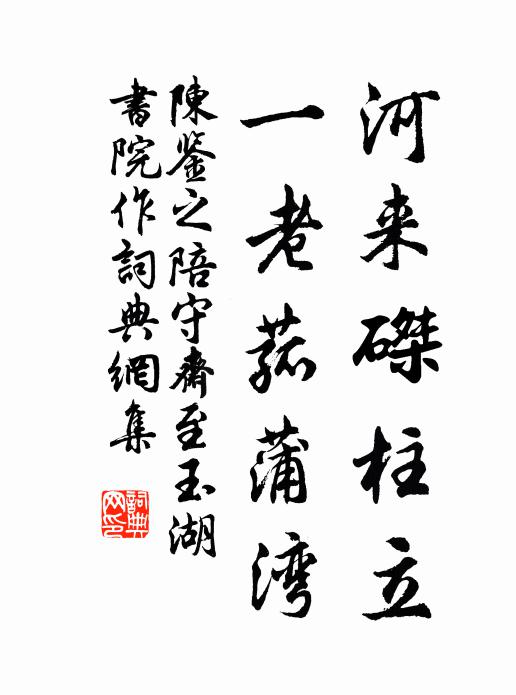 河来磔柱立
一老菰蒲湾
陳鉴之陪守齋至玉湖
書院作詞典網集
詞典
网印